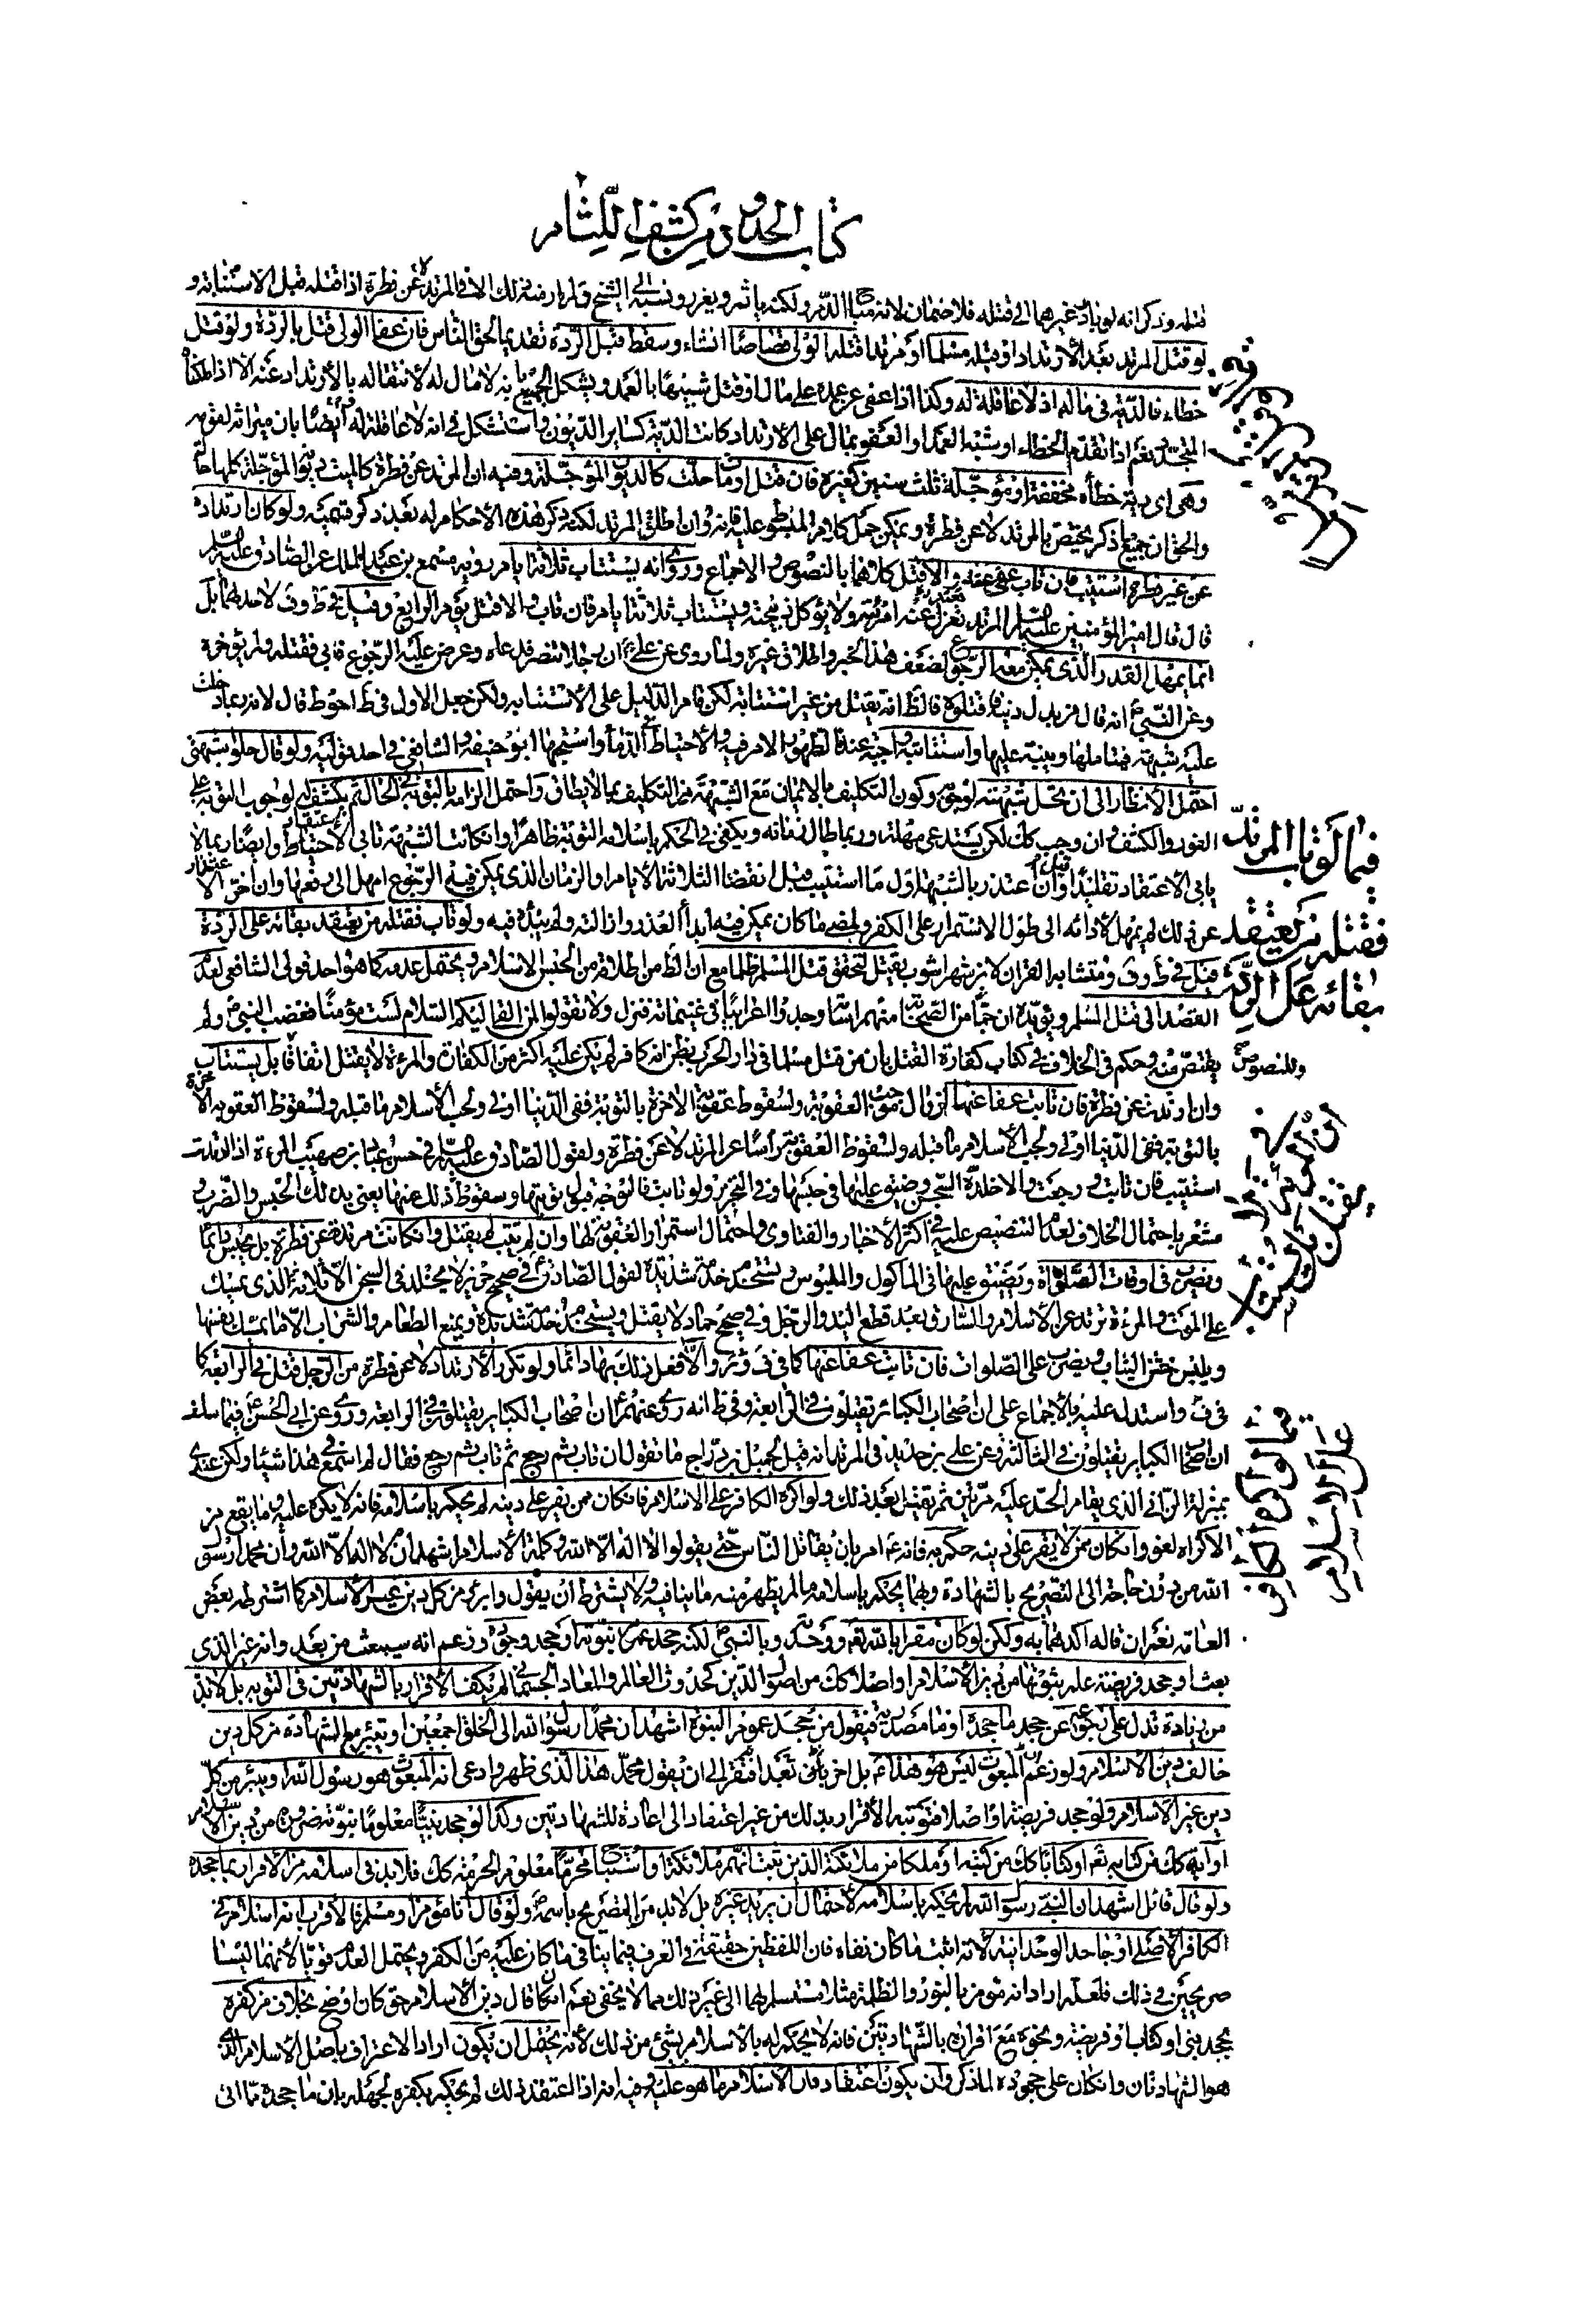 كتاب الحدود من كشف اللثام
قتله وذكر انه لو بادر غيرهما الى قتله فلا ضمان لانه مباح الدم ولكنه يأثم ويعزر ونسبه الى الشيخ ولم ار منه ذلك الا في المرتد لا عن فطرة اذا قتله قبل الاستتابة و
لو قتل المرتد بعد الارتداد او قبله مسلما او مرتدا قتله الولى قصاصا انشاء وسقط قتل الردة تقديما لحق الناس فان عفا الولى قتل بالردة ولو قتل
خطاء فالدية في ماله اذ لا عاقلة له وكذا اذا عفى عن عمده على مال او قتل شبيها بالعمد ويشكل الجميع بانه لا مال له لانتقاله بالارتداد عنه الا اذا امكنا
المتجدد نعم اذا تقدم الخطاء او شبه العمد او العفو بمال على الارتداد كانت الدية كسائر الديون واستشكل في انه لا عاقلة له ايضا بان ميراثه لقومه
وهى اى دية خطأه مخففة او مؤجلة ثلث سنين كغيره فان قتل او مات حلت كالديون المؤجلة وفيه ان المرتد عن فطرة كالميت ديونه المؤجلة كلها حالة
والحق ان جميع ما ذكر يختص بالمرتد لا عن فطرة ويمكن حمل كلام المبسوط عليه فانه وان اطلق المرتد لكنه ذكر هذه الاحكام له بعد ذكر قسميه ولو كان ارتداده
عن غير فطرة استتيب فان تاب عفى عنه والا قتل كلاهما بالنصوص والاجماع وروى انه يستتاب ثلاثة ايام رويه مسمع بن عبد الملك عن الصادق عليه السلم
قال قال امير المؤمنين عليه السلم المرتد تعزل عنه امرئته ولا يؤكل ذبيحته ويستتاب ثلاثة ايام فان تاب والا قتل يوم الرابع وقيل في ط وف لا حد لها بل
انما يمهل القدر الذى يمكن معه الرجوع لضعف هذا الخبر واطلاق غيره ولما روى عن على ع ان رجلا تنصر فدعاه وعرض عليه الرجوع فابى فقتله ولم يؤخره
وعن النبي ص انه قال من بدل دينه فاقتلوه فالظ انه يقتل من غير استتابة لكن قام الدليل على الاستتابة ولكن جعل الاول في ط احوط قال لانه ربما دخلت
عليه شبهة فيتاملها وينبه عليها واستتابته واجبة عندنا لظهور الامر فيه والاحتياط في الدماء واستحبها ابو حنيفة والشافعى في احد قوليه ولو قال حلوا شبهتى
احتمل الانظار الى ان يحل شبهته لوجوبه وكون التكليف بالايمان مع الشبهة من التكليف بما لا يطاق واحتمل الزامه بالتوبة في الحال ثم يكشف له لوجوب التوبة على
الفور والكشف وان وجب كك لكن يستدعى مهلة وربما طال زمانه ويكفى في الحكم باسلامه التوبة ظاهرا وان كانت الشبهة تابى الاعتقاد احتياط وايضا ربما لا
يابى الاعتقاد تقليدا وان اعتذر بالشبهة اول ما استتيب قبل انقضاء الثلاثة الايام او الزمان الذى يمكن فيه الرجوع امهل الى رفعها وان اخر الاعتذار
عن ذلك لم يمهل لادائه الى طول الاستمرار على الكفر ولمضى ما كان يمكن فيه ابداء العذر وازالته ولم يبده فيه ولو تاب فقتله من يعتقد بقائه على الردة
قيل في ط وف ومتشابه القران لابن شهراشوب يقتل لتحقق قتل المسلم ظلما مع ان الظ من اطلاقه من الحبس الاسلام ويحتمل عدمه كما هو احد قولى الشافعى لعدم
القصد الى قتل المسلم ويؤيده ان جمعا من الصحابة منهم اسامة وجدوا اعرابيا في غنيماته فنزل ولا تقولوا لمن القى اليكم السلام لست مؤمنا فغضب النبي ص ولم
يقتص منه وحكم في الخلاف في كتاب كفارة القتل بان من قتل مسلما في دار الحرب يظن انه كافر لم يكن عليه اكثر من الكفارة والمرءة لا يقتل اتفاقا بل يستتاب
وان ارتدت عن فطرة فان تابت عفا عنها لزوال موجب العقوبة ولسقوط عقوبة الاخرة بالتوبة ففى الدنيا اولى ولجب الاسلام ما قبله ولسقوط العقوبة الاخرة
بالتوبة ففى الدنيا اولى ولجب الاسلام ما قبله ولسقوط العقوبة رأسا عن المرتد لا عن فطرة ولقول الصادق عليه السلم في حسن عباد بن صهيب المرءة اذا ارتدت
استتيبت فان تابت ورجعت والا خلدت السجن وضيق عليها في حبسها وفى التحرير ولو تابت فالوجه قبول توبتها وسقوط ذلك عنها يعنى بذلك الحبس والضرب و
مشعر باحتمال الخلاف لعدم التنصيص عليه في اكثر الاخبار والفتاوى واحتمال استمرار العقوبة لها وان لم يتب لم يقتل وان كانت مرتدة عن فطرة بل يحبس دائما
ويضرب في اوقات الصلوة ويضيق عليها في الماكول والملبوس ويستخدم خدمة شديدة لقول الصادق ع في صحيح حريز لا يخلد في السجن الا ثلاثة الذى يمسك
على الموت والمرءة ترتد عن الاسلام والسارق بعد قطع اليد والرجل وفى صحيح حماد لا يقتل ويستخدم خدمة شديدة ويمنع الطعام والشراب الا ما يمسك نفسها
ويلبس خشن الثياب ويضرب على الصلوات فان تابت عفا عنها كما في ف والا فعل ذلك بها دائما ولو تكرر الارتداد لا عن فطرة من الرجل قتل في الرابعة كما
في ف واستدل عليه بالاجماع على ان اصحاب الكبائر يقتلون في الرابعة وفى ط انه روى عنهم ع ان اصحاب الكبائر يقتلون في الرابعة وروى عن ابى الحسن ع فيما سلف
ان اصحاب الكبائر يقتلون في الثالثة وعن على بن حديد في المرتد انه قيل لجميل بن دراج ما تقول ان تاب ثم رجع ثم تاب ثم رجع فقال لم اسمع في هذا شيئا ولكن عندى
بمنزلة الزانى الذى يقام الحد عليه مرتين ثم يقتل بعد ذلك ولو اكره الكافر على الاسلام فان كان ممن يقر على دينه لم يحكم باسلامه فانه لا يكره عليه وما يقع من
الاكراه لغو وان كان ممن لا يقر على دينه حكم به فانه ع امر بان يقاتل الناس حتى يقولوا لا اله الا الله وكلمة الاسلام اشهد ان لا اله الا الله وان محمدا رسول
الله من دون حاجة الى التصريح بالشهادة وبهما يحكم باسلامه ما لم يظهر منه ما ينافيه ولا يشترط ان يقول وابرء من كل دين غير الاسلام كما اشترطه بعض
العامة نعم ان قاله اكدهما به ولكن لو كان مقرا بالله تعم ووحدته وبالنبي ص لكنه جحد عموم نبوته او جحد وجوده وزعم انه سيبعث من بعد وانه غير الذى
بعث او جحد فريضة علم ثبوتها من دين الاسلام او اصلا كك من اصول الدين كحدوث العالم والمعاد الجسمانى لم يكف الاقرار بالشهادتين في التوبة بل لا بد
من زيادة تدل على رجوعه عن جحد ما جحده او ما قصد به فيقول من جحد عموم النبوة اشهد ان محمدا رسول الله الى الخلق اجمعين او يتبرء مع الشهادة من كل دين
خالف دين الاسلام ولو زعم ان المبعوث ليس هو هذا ع بل اخر ياتى بعد افتقر الى ان يقول محمد هذا الذى ظهر وادعى انه المبعوث هو رسول الله او يتبرء من كل
دين غير الاسلام ولو جحد فريضة او اصلا فتوبته الاقرار بذلك من غير افتقار الى اعادة للشهادتين وكذا لو جحد نبيا معلوما نبوته ضرورة من دين الاسلام
او اية كك من كتابه تعم او كتابا كك من كتبه او ملكا من ملائكته الذين ثبت انهم ملائكة او استباح محرما معلوم الحرمة كك فلا بد في اسلامه من الاقرار بما جحده
ولو قال قائل اشهد ان النبي رسول الله لم يحكم باسلامه لاحتمال ان يريد غيره بل لا بد من التصريح باسمه ولو قال انا مؤمن او مسلم فالاقرب انه اسلام في
الكافر الاصلى او جاحد الوحدانية لانه اثبت ما كان نفاه فان اللفظين حقيقة في العرف فيما ينافى ما كان عليه من الكفر ويحتمل العدم قويا لانهما ليسا
صريحين في ذلك فلعله اراد انه مؤمن بالنور والظلمة مثلا مستسلم لهما الى غير ذلك مما لا يخفى نعم ان كان قال دين الاسلام حق كان اوضح بخلاف من كفره
بجحد نبى او كتاب او فريضة ونحوه مع اقراره بالشهادتين فانه لا يحكم له بالاسلام بشئ من ذلك لانه يحتمل ان يكون اراد الاعتراف باصل الاسلام الذى
هو الشهادتان وان كان على جحوده لما ذكر وان يكون اعتقاده ان الاسلام ما هو عليه وفيه انه اذا اعتقد ذلك لم يحكم بكفره لجهله بان ما جحده مما اتى
فيما لو تاب المرتد
فقتله من يعتقد
بقائه على الردة
وللنصوص
ان المرءة لا
يقتل بالارتداد
فيما لو اكره الكافر
على الاسلام